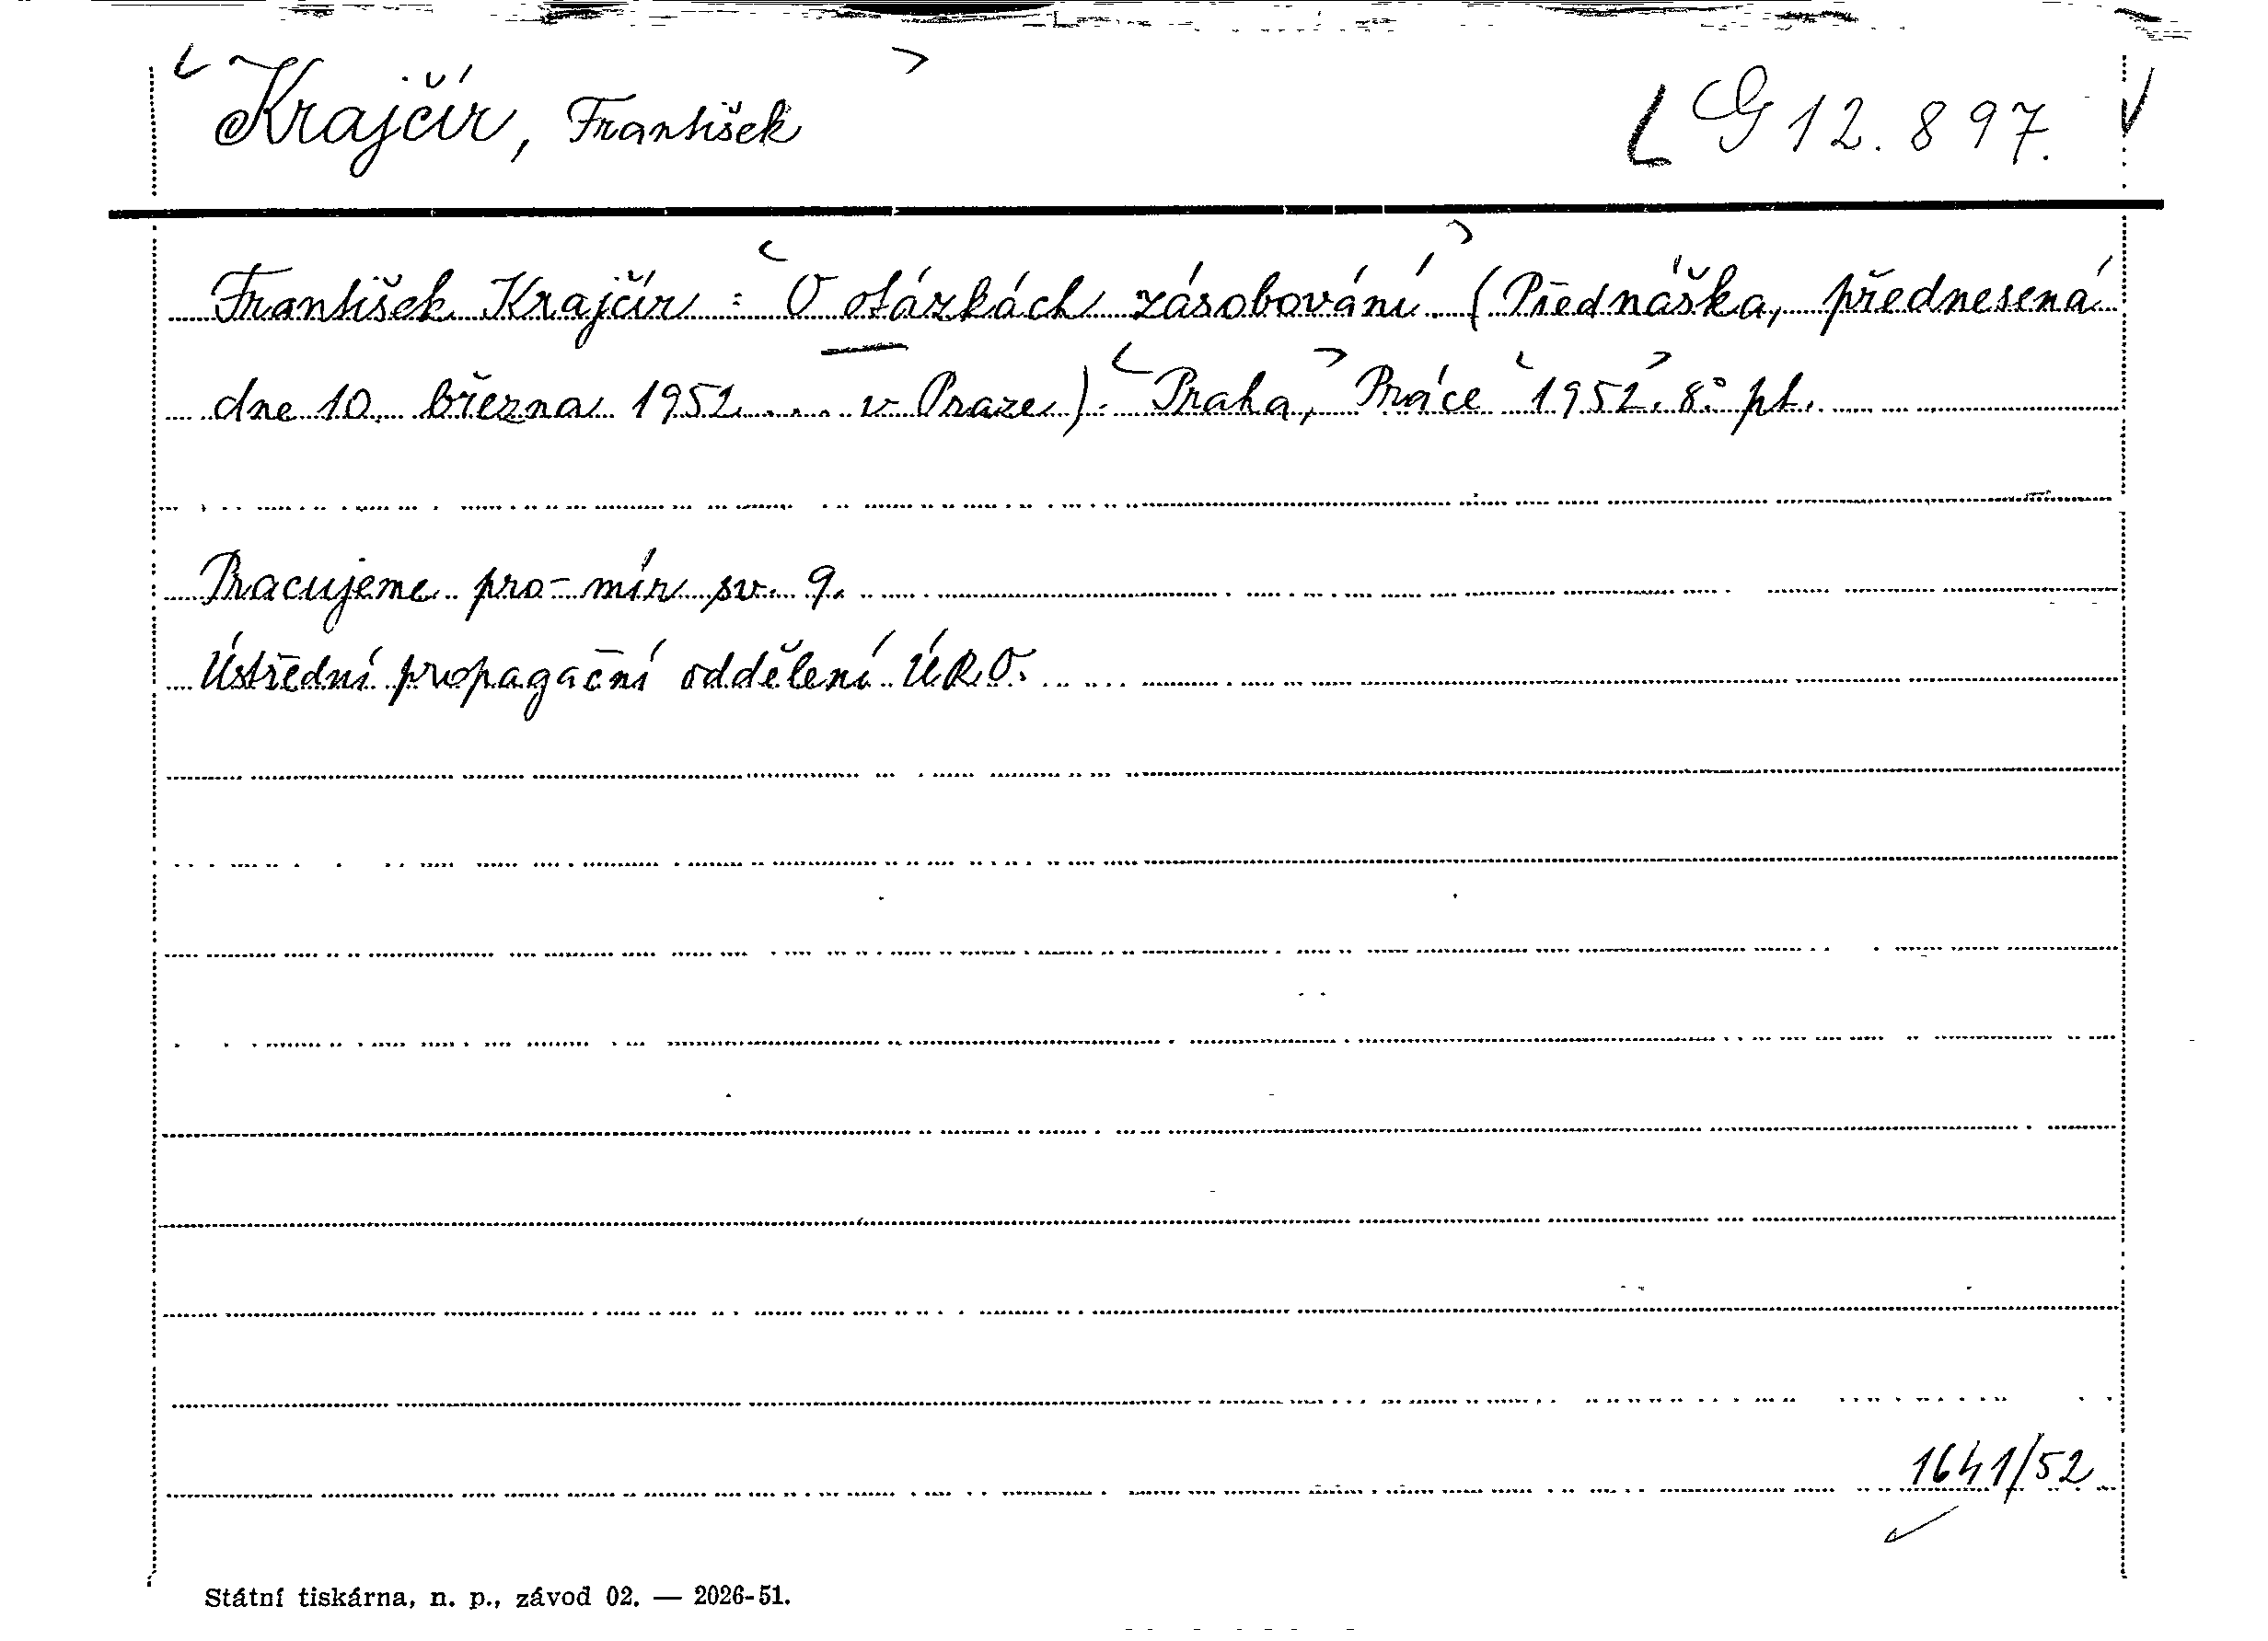 Krajčír, František
G 12.897.
František Krajčír : O otázkách zásobování. (Přednáška, přednesená
dne 10. března 1952 ... v Praze). Praha, Práce 1952. 8° pt.
Pracujeme pro mír sv. 9.
Ústřední propagační oddělení ÚRO.
1641/52
Státní tiskárna, n. p., závod 02. — 2026-51.